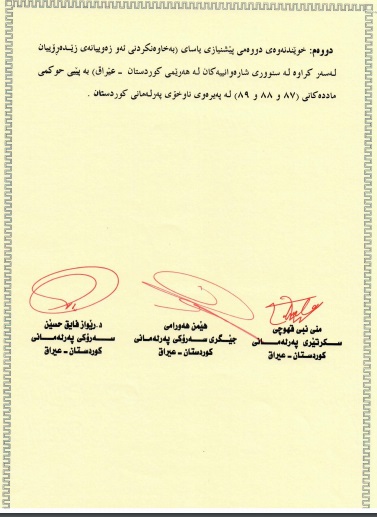 دووەم: خوێندنەوەی دووەمی پێشنیازی یاسای (بەخاوەنکردنی ئەو زەوییانەی زێدەڕۆییان
لەسەر کراوە لە سنووری شارەوانییەکان لە هەرێمی کوردستان - عێراق) بە پێی حوکمی
ماددەکانی (٨٧ و ٨٨ و ٨٩) لە پەیرەوی ناوخۆی پەرلەمانی کوردستان .
منى نبي قهوچي
سكرتێری پەرلەمـــانی
كوردستان - عیراق
هێمن هەورامی
جێگری ســەرۆکی پەرلەمـــانی
كوردستان - عیراق
د.رێواز فایق حسێن
ســەرۆکی پەرلەمـــانی
كوردستان - عیراق